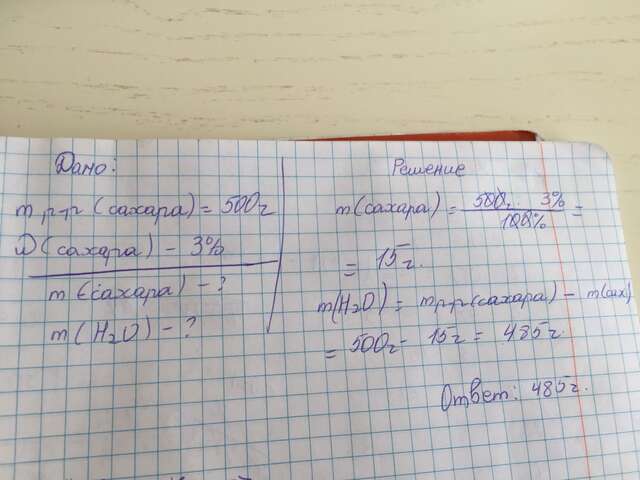 Дано:
m р-р (сахара) = 500г
ω (сахара) - 3%
m (сахара) - ?
m (H₂O) - ?
Решение
m (сахара) = 500г · 3% / 100% =
= 15г.
m(H₂O) = m р-р (сахара) - m(сах)
= 500г - 15г = 485г.
Ответ: 485г.